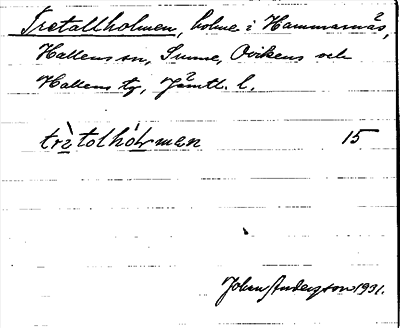 Tretallholmen, holme i Hammarnäs,
Hallens sn, Sunne, Ovikens och
Hallens tg, Jämtl. l.
trètolhólmman 15
John Anderzson 1931.